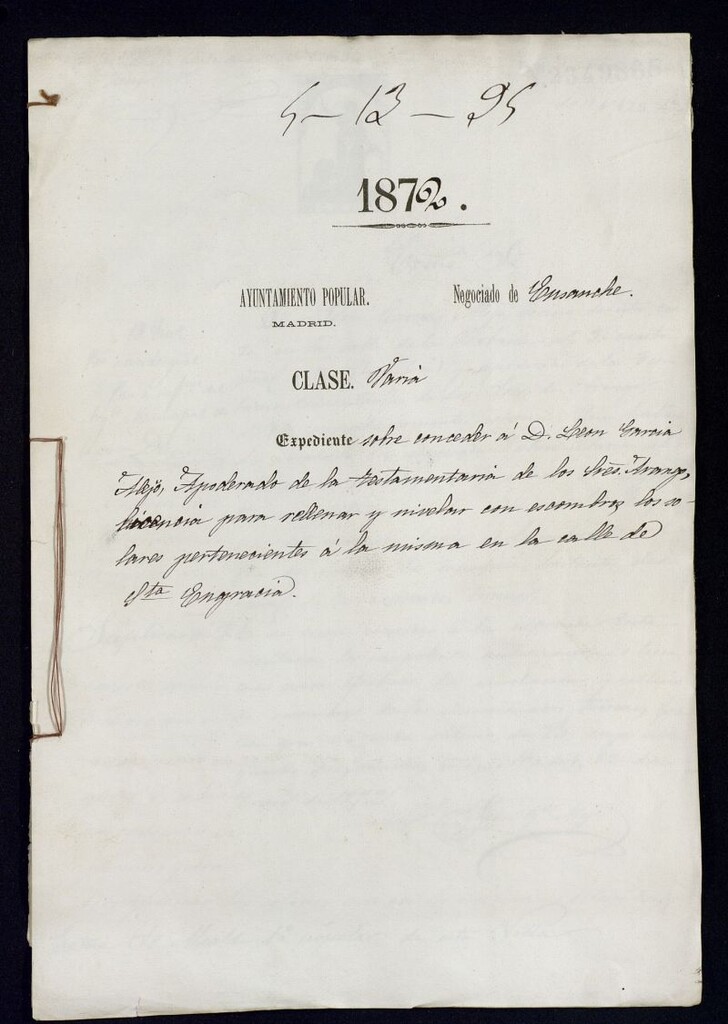 5-13-95
1872.
AYUNTAMIENTO POPULAR. Negociado de Ensanche.
MADRID.
CLASE. Varia
Expediente sobre conceder á D. Leon Garcia
Alejo, Apoderado de la testamentaria de los Sres. Arango,
licencia para rellenar y nivelar con escombros los so-
lares pertenecientes á la misma en la calle de
Sta Engracia.